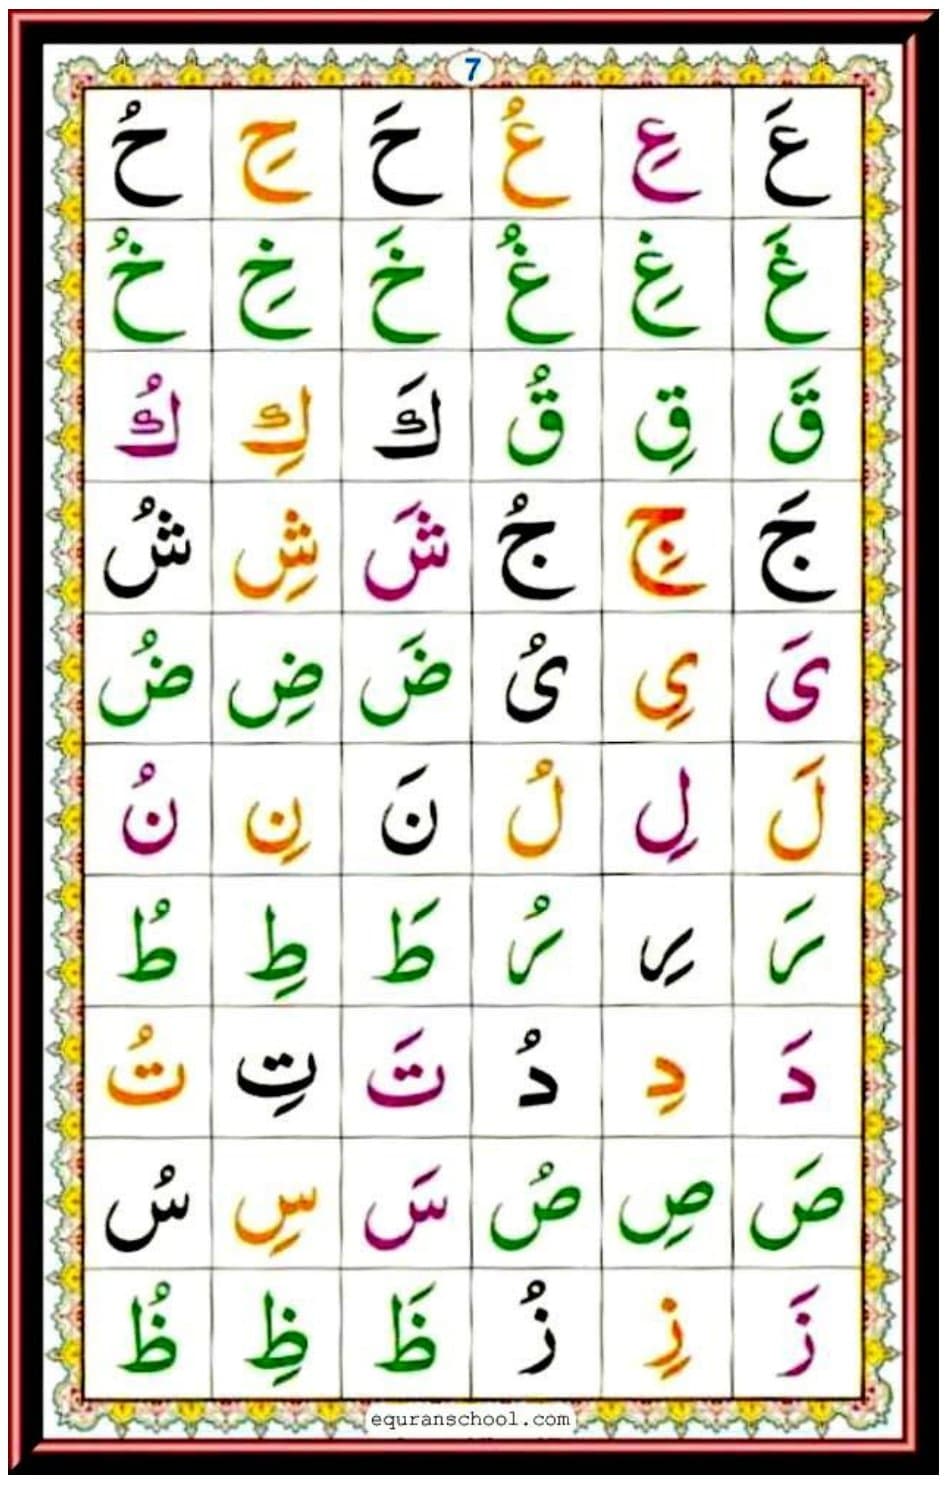 7
عَ عِ عُ حَ حِ حُ
غَ غِ غُ خَ خِ خُ
قَ قِ قُ كَ كِ كُ
جَ جِ جُ شَ شِ شُ
ىَ ىِ ىُ ضَ ضِ ضُ
لَ لِ لُ نَ نِ نُ
رَ رِ رُ طَ طِ طُ
دَ دِ دُ تَ تِ تُ
صَ صِ صُ سَ سِ سُ
زَ زِ زُ ظَ ظِ ظُ
equranschool.com